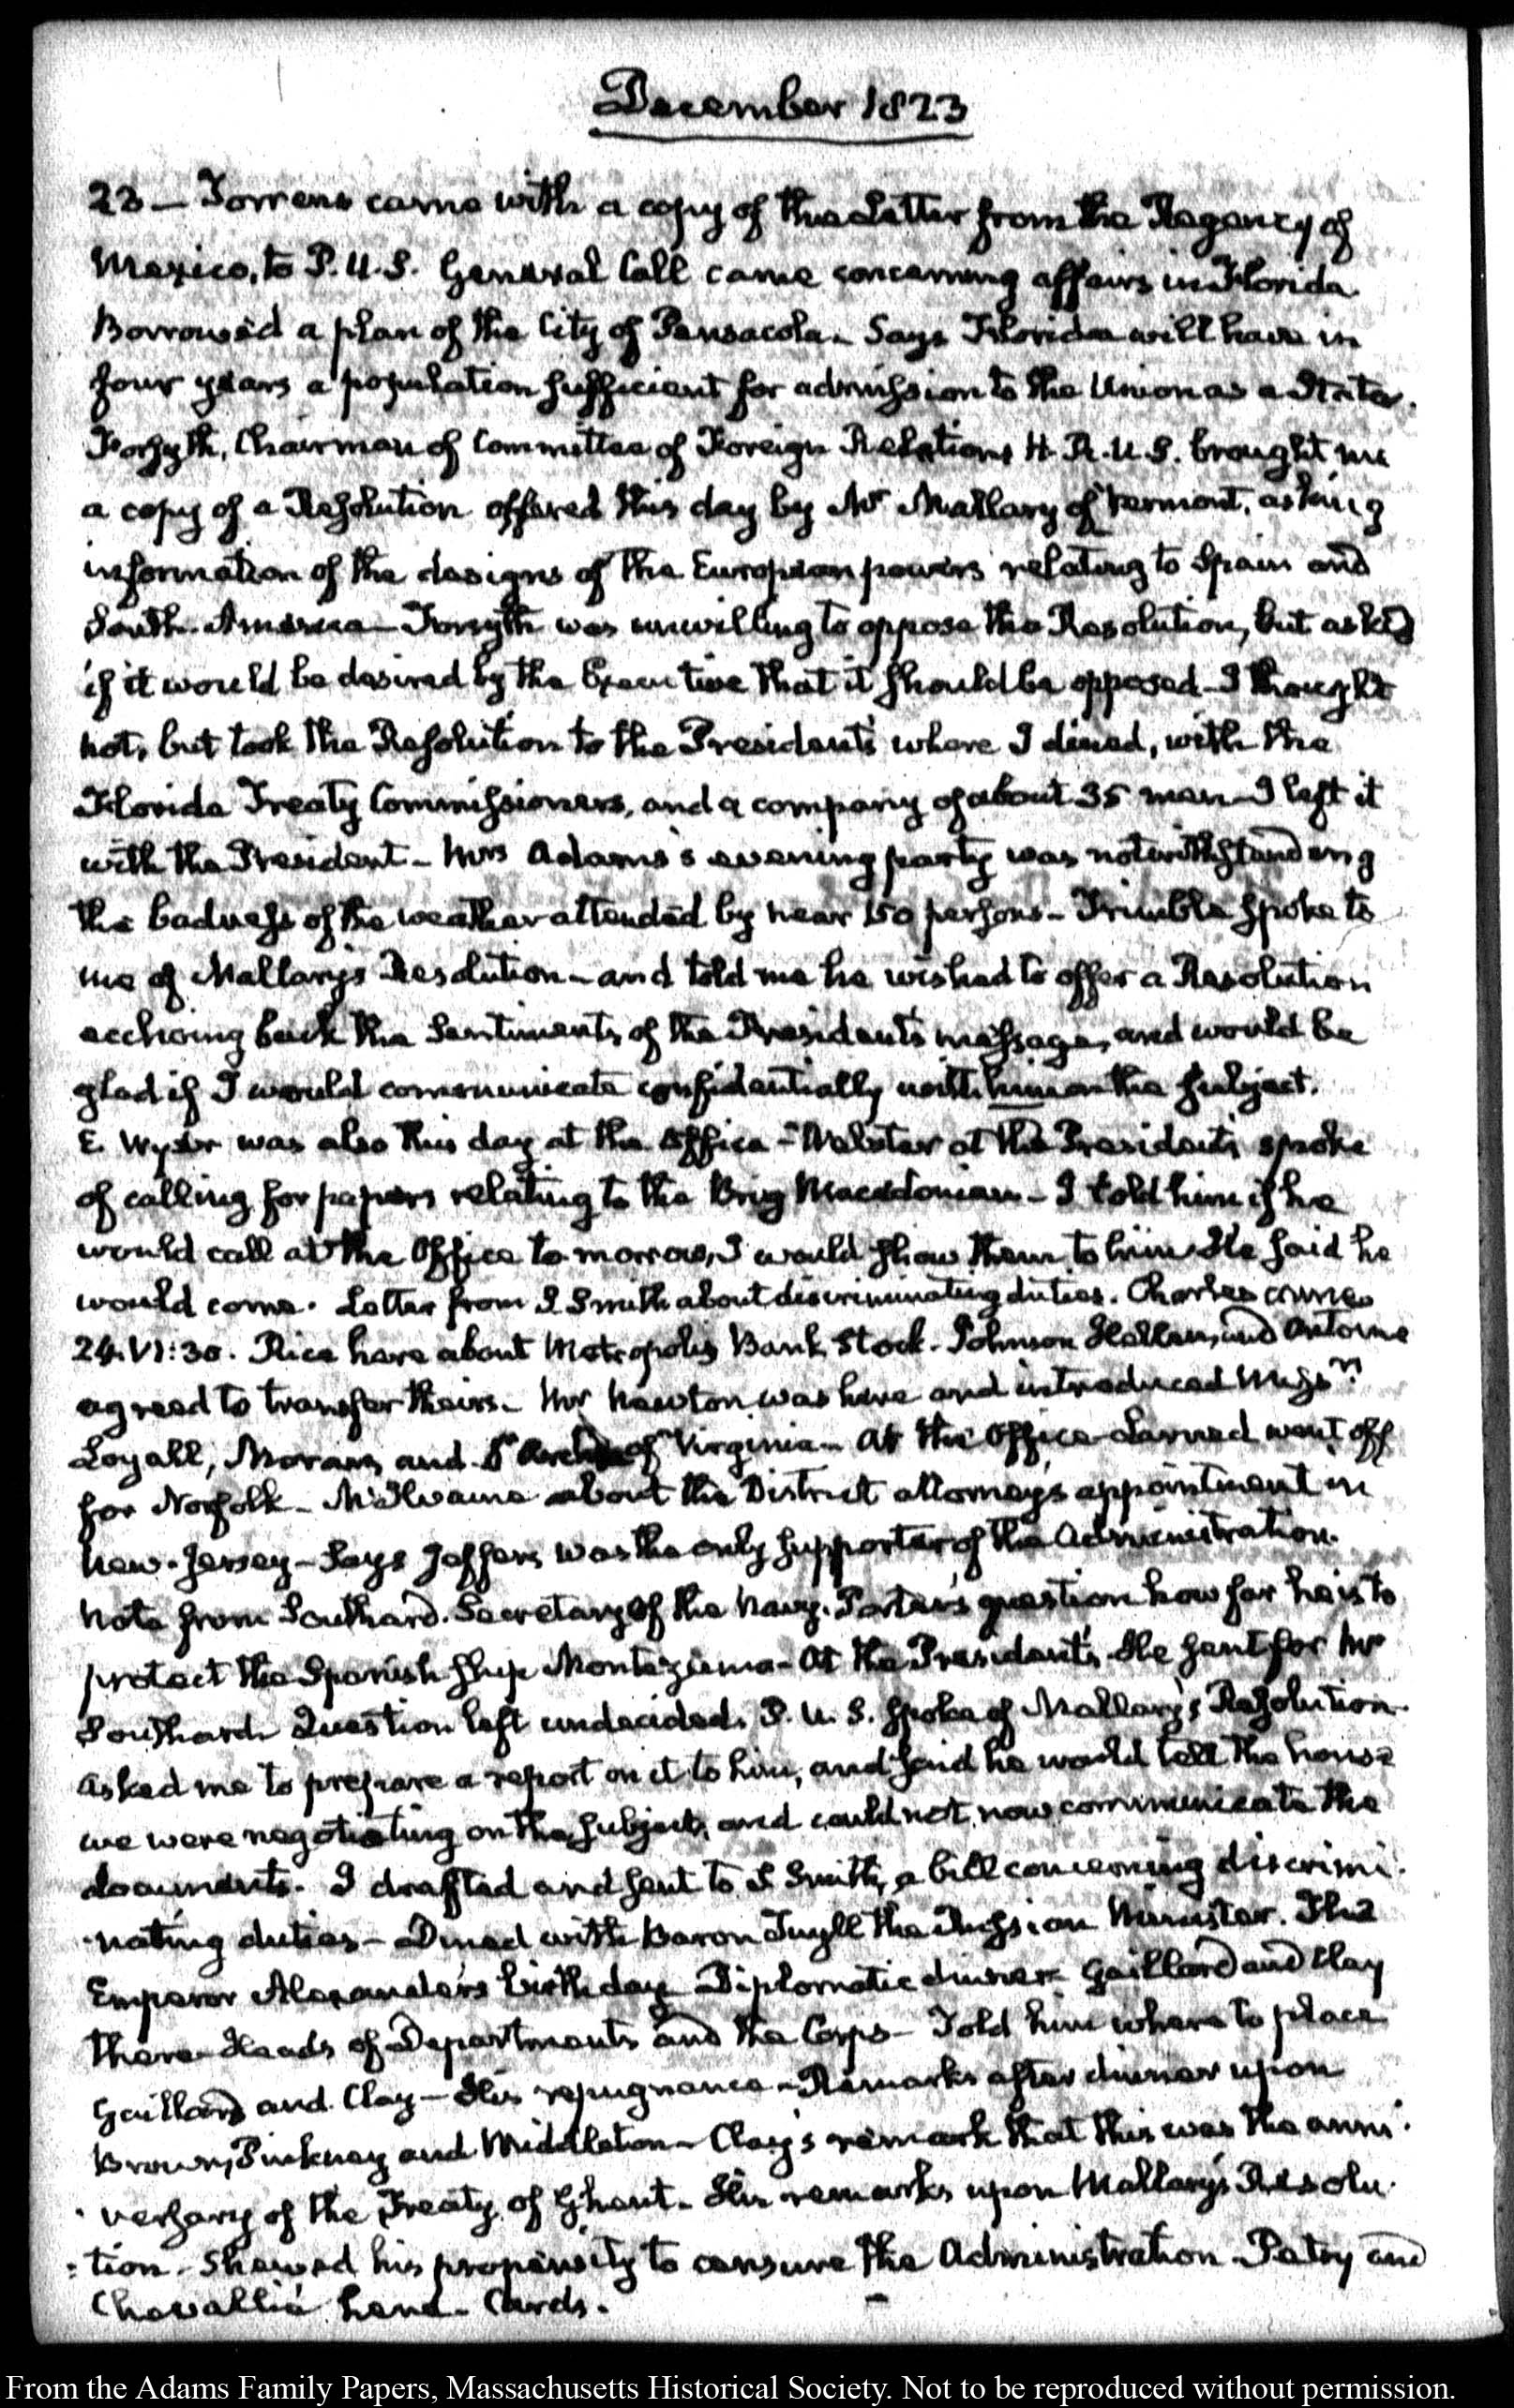 December 1823
23 — Torrens came with a copy of the Letter from the Regency of
Mexico, to P. U. S. General Call came concerning affairs in Florida
Borrowed a plan of the City of Pensacola — Says Florida will have in
four years a population sufficient for admission to the Union as a State.
Forsyth, Chairman of Committee of Foreign Relations H. R. U. S. brought me
a copy of a Resolution offered this day by Mr Mallary of Vermont, asking
information of the designs of the European powers relating to Spain and
South-America — Forsyth was unwilling to oppose the Resolution, but asked
if it would be desired by the Executive that it should be opposed — I thought
not, but took the Resolution to the President's where I dined, with the
Florida Treaty Commissioners, and a company of about 35 men — I left it
with the President — Mrs Adams's evening party was notwithstanding
the badness of the weather attended by near 150 persons — Trimble spoke to
me of Mallary's Resolution — and told me he wished to offer a Resolution
ecchoing back the sentiments of the President's message, and would be
glad if I would communicate confidentially with him on the subject.
E. Wyer was also this day at the Office — Webster at the President's spoke
of calling for papers relating to the Brig Macedonian — I told him if he
would call at the Office to-morrow, I would show them to him. He said he
would come. Letter from S. Smith about discriminating duties. Charles came
24. VI:30. Rice here about Metropolis Bank Stock — Johnson Hellen, and Antoine
agreed to transfer theirs — Mr Newton was here and introduced Messrs
Loyall, and of Virginia — At the Office Larned went off
for Norfolk — McIlvaine about the District attorney's appointment in
New-Jersey — Says Jeffers was the only supporter of the Administration.
Note from Southard. Secretary of the Navy. Porter's question how far he is to
protect the Spanish ship Montezuma — At the President's. He sent for Mr
Southard. Question left undecided. P. U. S. spoke of Mallary's Resolution.
Asked me to prepare a report on it to him, and said he would tell the house
we were negotiating on the subject, and could not now communicate the
documents. I drafted and sent to S. Smith, a bill concerning discrimi-
-nating duties — Dined with Baron Tuyll the Russian Minister. The
Emperor Alexander's birth day. Diplomatic dinner — Gaillard and Clay
there — Heads of Departments and the Corps — Told him where to place
Gaillard and Clay — His repugnance — Remarks after dinner upon
Brown, Pinkney and Middleton — Clay's remark that this was the anni-
-versary of the Treaty of Ghent. His remarks upon Mallary's Resolu-
-tion — Shewed his propensity to censure the Administration — Petry and
Chevallié here. Cards.
From the Adams Family Papers, Massachusetts Historical Society. Not to be reproduced without permission.